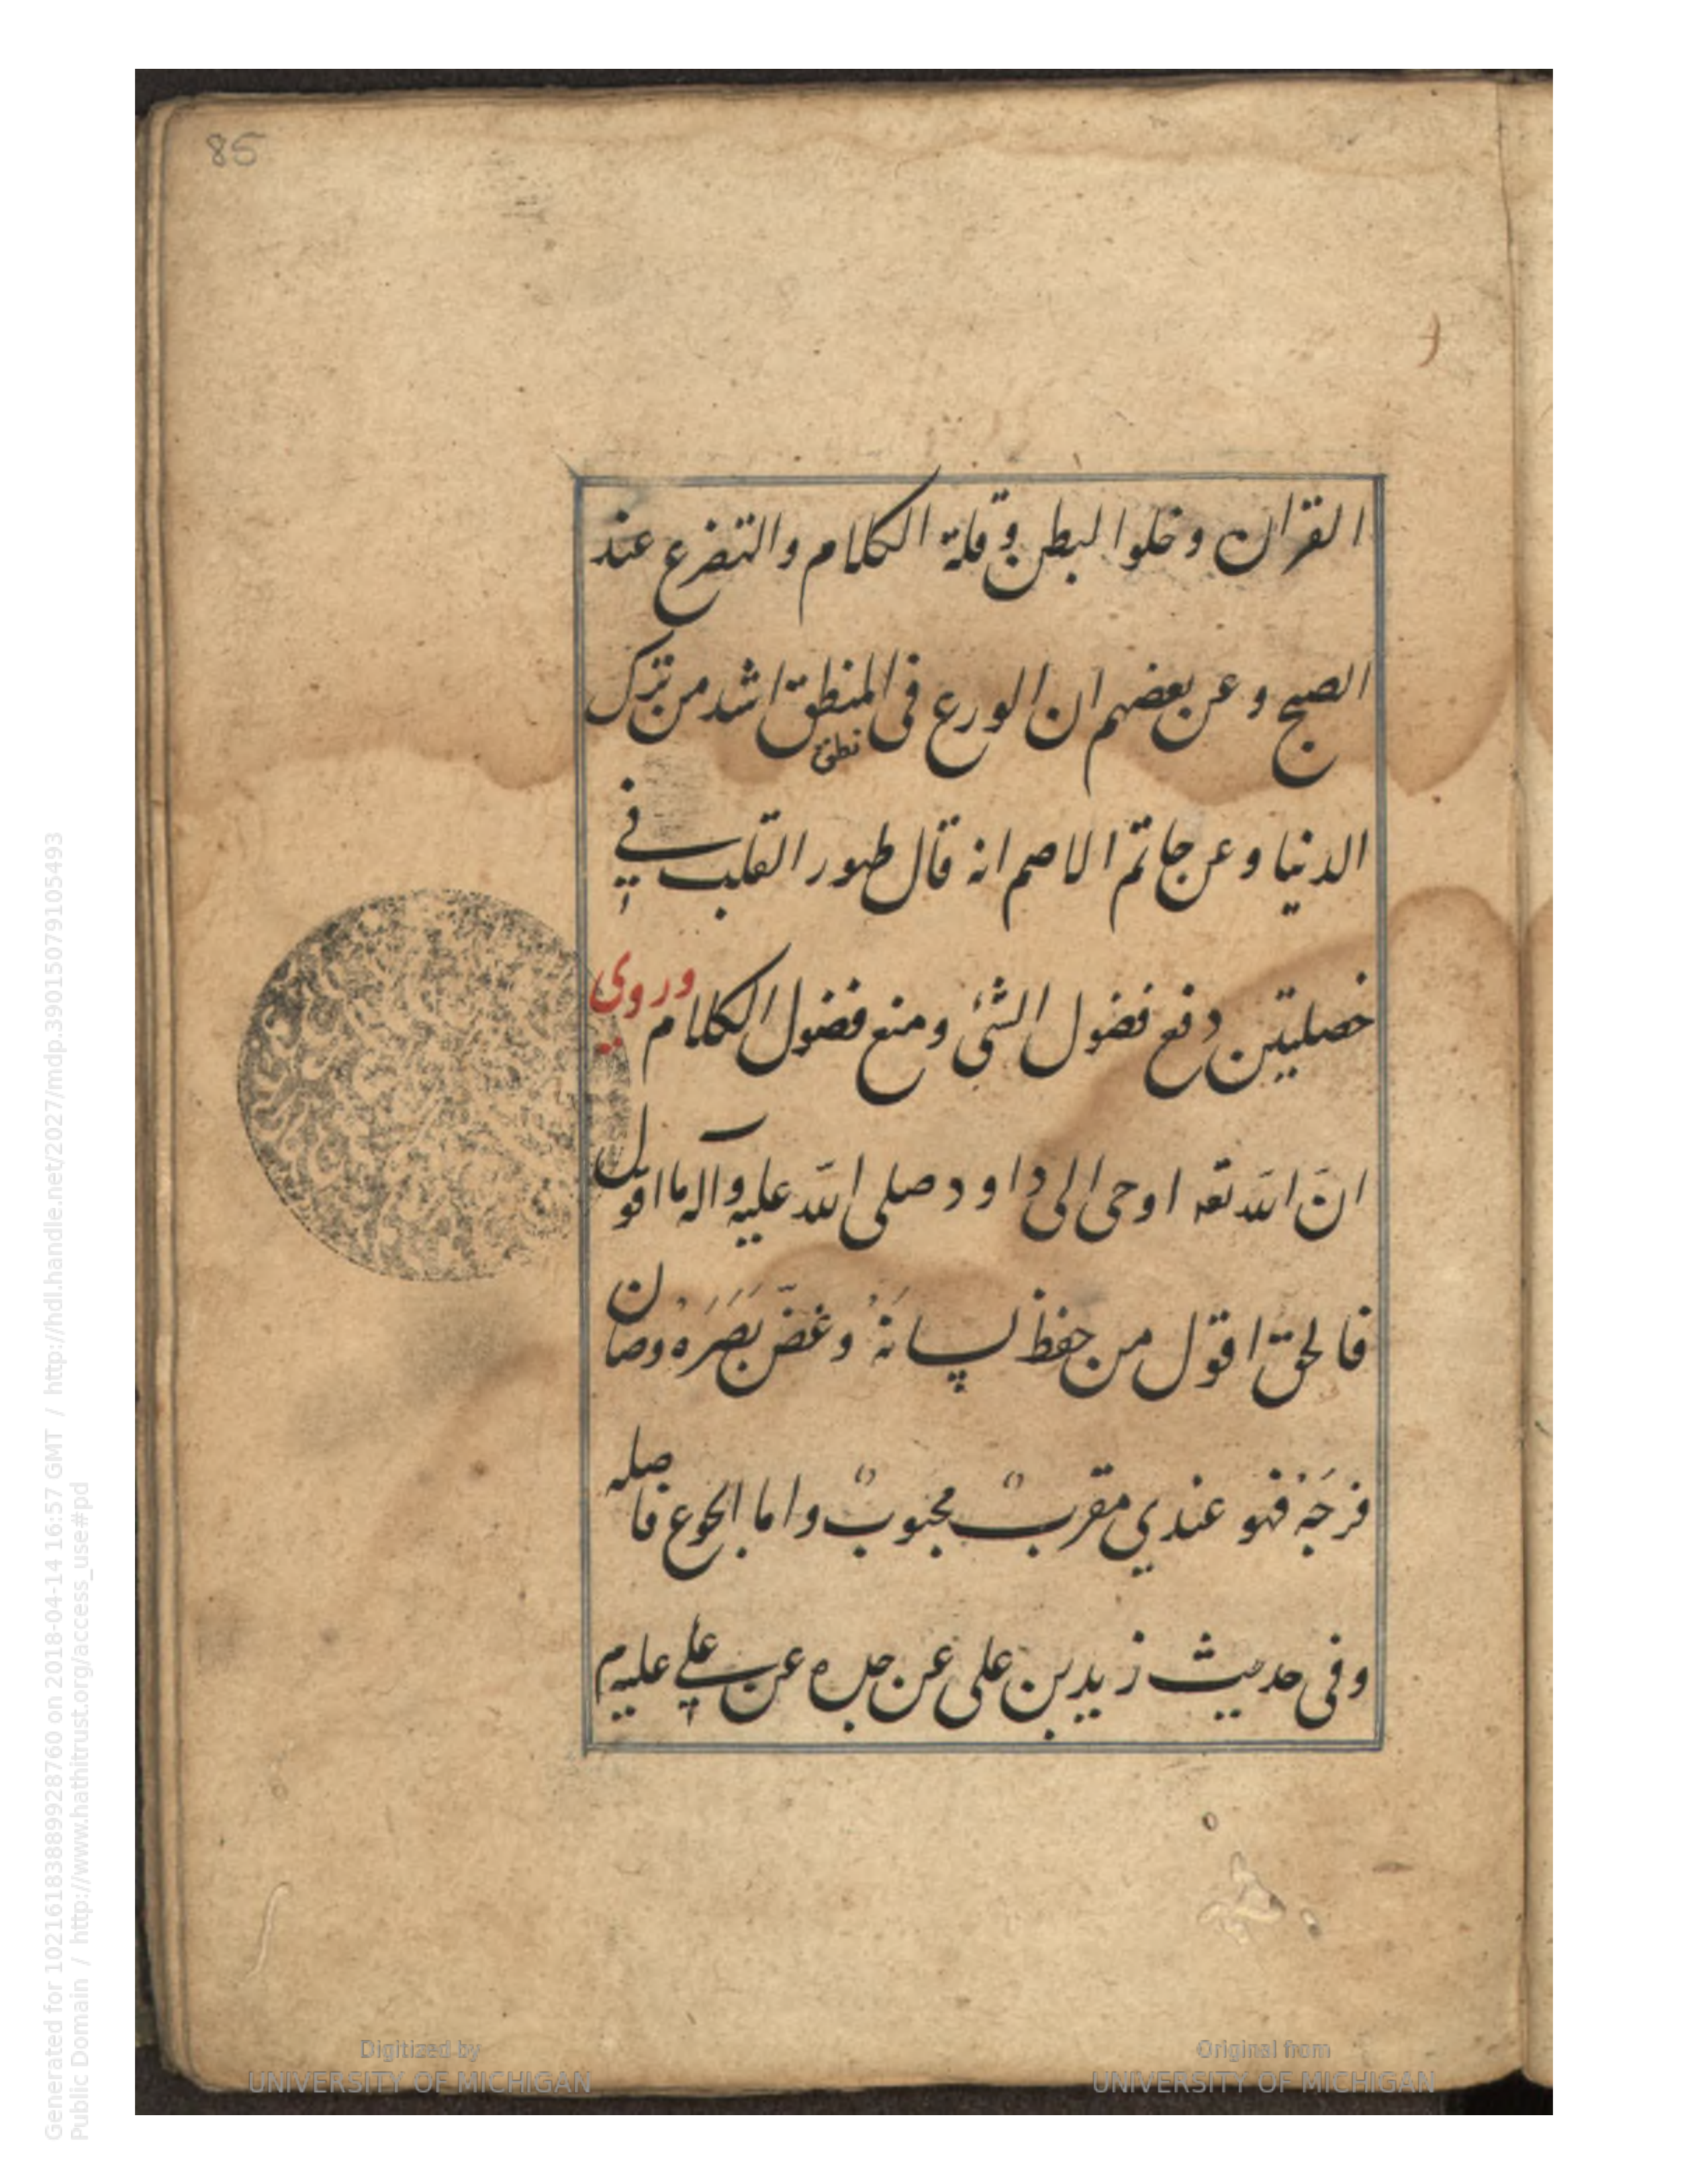 85
القران وخلوا لبطن وقلة الكلام والتضرع عند
الصبح وعن بعضهم ان الورع فى المنطق اشد من ترك
نطق
الدنيا وعن حاتم الاصم انه قال طهور القلب في
خصلتين دفع فضول الشئ ومنع فضول الكلام وروي
انّ الله تعه اوحى الى داود صلى الله عليه وآله ما اقول
فالحق اقول من حفظ لسانَهُ وغضّ بَصَرَهُ وصان
فرجَهُ فهو عندي مقربٌ محبوبٌ واما الجوع فاصله
وفى حديث زيد بن على عن جده عن علي عليه م
Generated for 102161838899928760 on 2018-04-14 16:57 GMT / http://hdl.handle.net/2027/mdp.39015079105493
Public Domain / http://www.hathitrust.org/access_use#pd
Digitized by
UNIVERSITY OF MICHIGAN
Original from
UNIVERSITY OF MICHIGAN